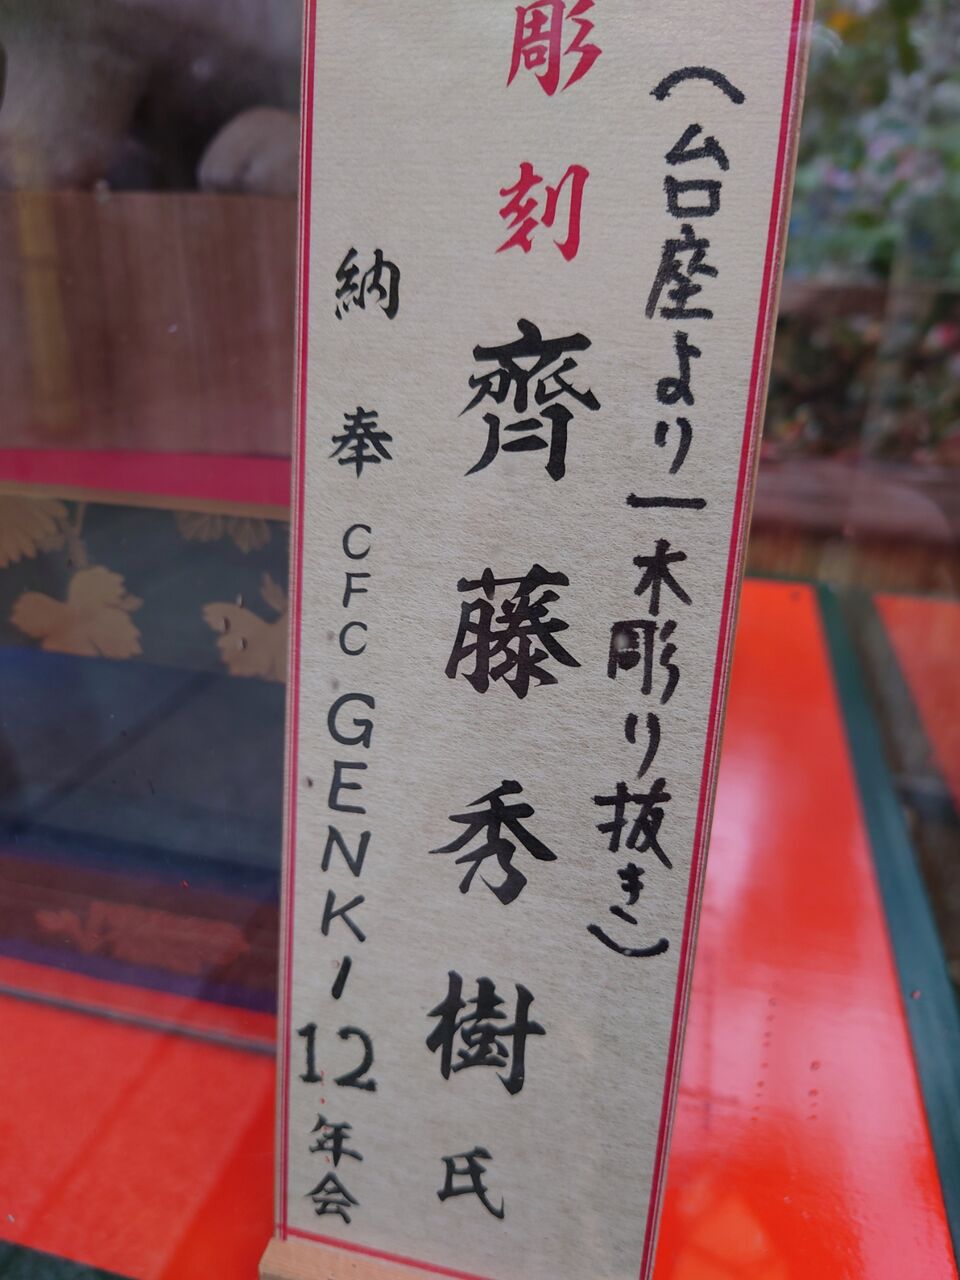 (台座より一木彫り抜き)
彫刻 齊藤秀樹氏
納奉 CFC GENKI 12年会